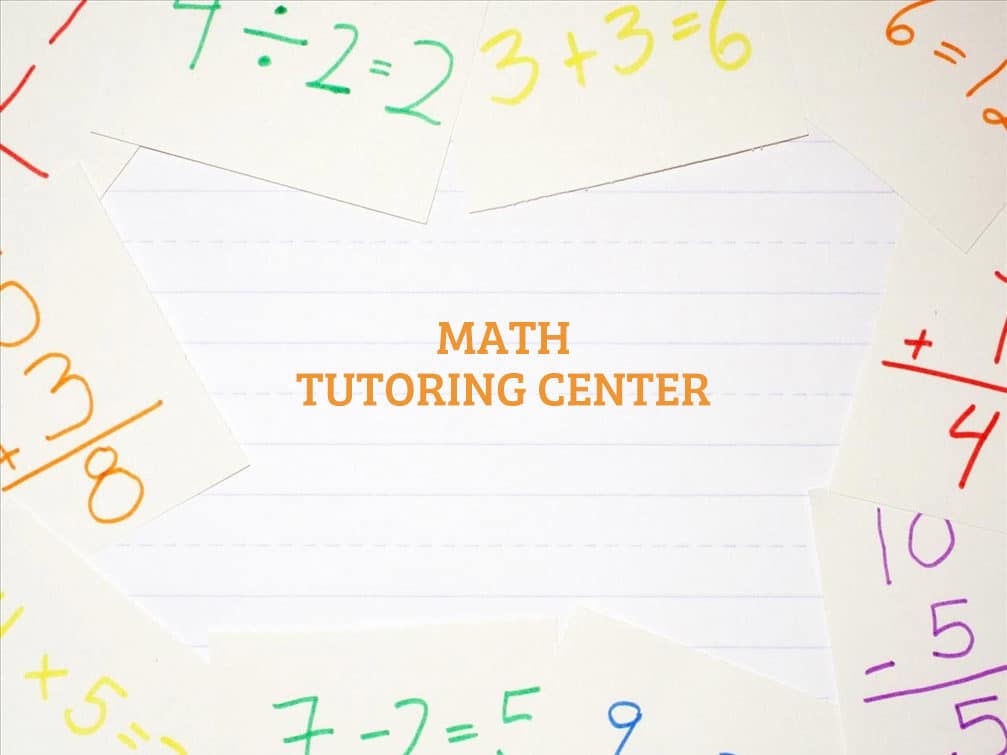 ÷ 2 = 2
3 + 3 = 6
6 =
MATH
TUTORING CENTER
+
4
3
8
10
- 5
5
+ 5 =
7 - 2 = 5
9